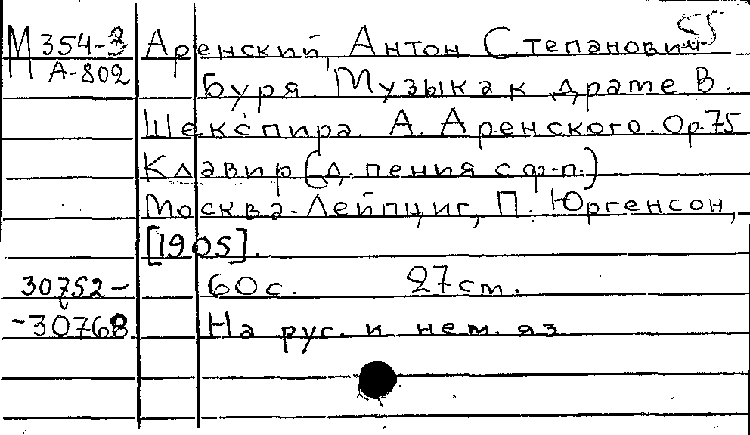 55
М 354-3 Аренский, Антон Степанович
А-802 Буря. Музыка к драме В.
Шекспира. А. Аренского. Op.75
Клавир (д. пения с ф-п.)
Москва-Лейпциг, П. Юргенсон,
[1905].
30752- 60 с. 27 см.
-30768 На рус. и нем. яз.